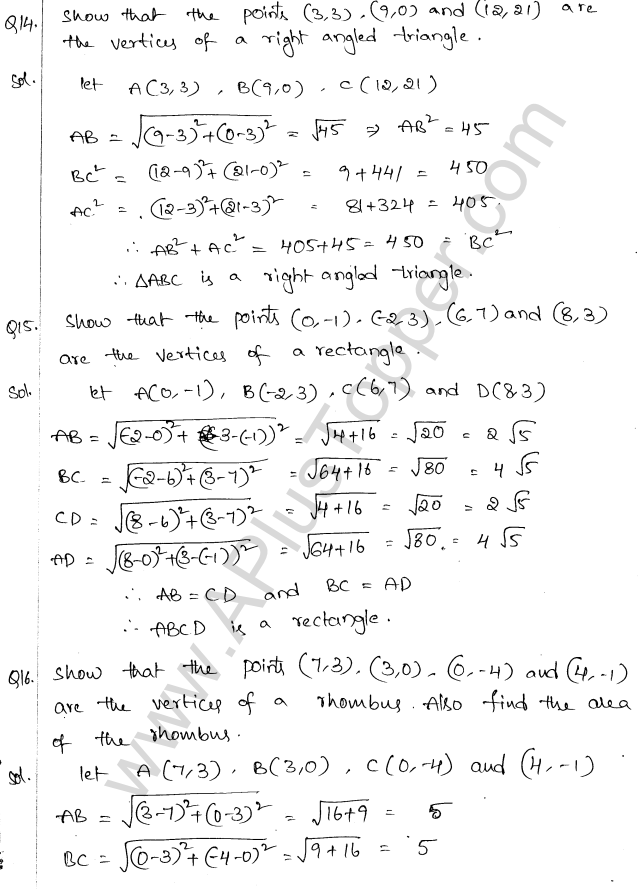 Q14. Show that the points (3,3), (9,0) and (12,21) are
the vertices of a right angled triangle.
Sol. let A(3,3), B(9,0), C(12,21)
AB = √(9-3)²+(0-3)² = √45 ⇒ AB² = 45
BC² = (12-9)²+(21-0)² = 9+441 = 450
AC² = (12-3)²+(21-3)² = 81+324 = 405.
∴ AB²+AC² = 405+45 = 450 = BC²
∴ ΔABC is a right angled triangle.
Q15. Show that the points (0,-1), (-2,3), (6,7) and (8,3)
are the vertices of a rectangle.
Sol. let A(0,-1), B(-2,3), C(6,7) and D(8,3)
AB = √(-2-0)²+(3-(-1))² = √4+16 = √20 = 2√5
BC = √(-2-6)²+(3-7)² = √64+16 = √80 = 4√5
CD = √(8-6)²+(3-7)² = √4+16 = √20 = 2√5
AD = √(8-0)²+(3-(-1))² = √64+16 = √80. = 4√5
∴ AB = CD and BC = AD
∴ ABCD is a rectangle.
Q16. Show that the points (7,3), (3,0), (0,-4) and (4,-1)
are the vertices of a rhombus. Also find the area
of the rhombus.
Sol. let A(7,3), B(3,0), C(0,-4) and (4,-1)
AB = √(3-7)²+(0-3)² = √16+9 = 5
BC = √(0-3)²+(-4-0)² = √9+16 = 5
www.APlusTopper.com